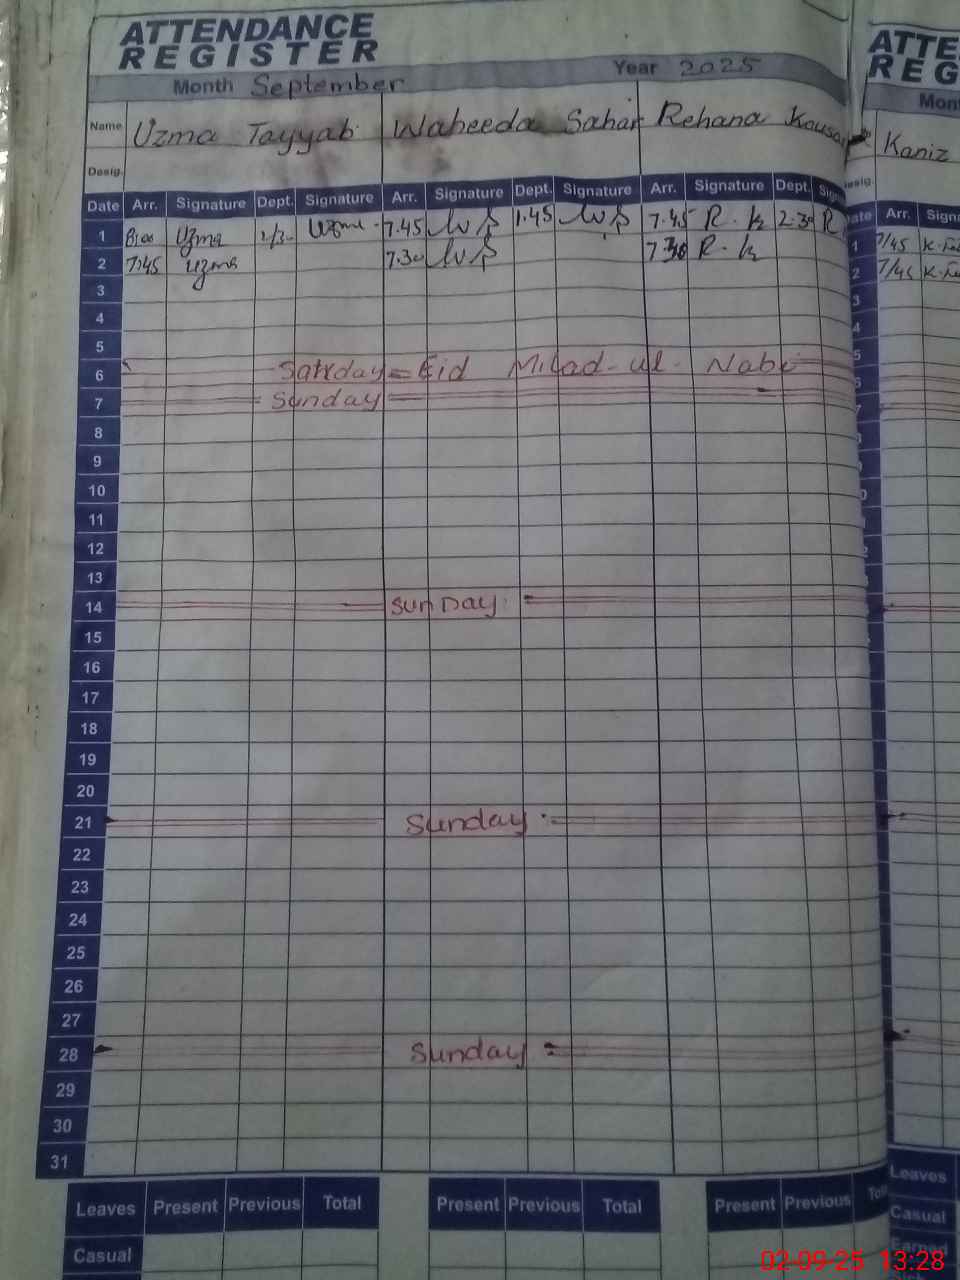 ATTENDANCE REGISTER
Month September Year 2025
Name Uzma Tayyab Waheeda Sahar Rehana Kousar
Desig.
Date Arr. Signature Dept. Signature Arr. Signature Dept. Signature Arr. Signature Dept.
1 8/00 Uzma Uzma 7.45 1.45 7.45 R.k 2.30 R
2 7:45 Uzma 7.30 7.30 R.k
3
4
5
6 Satrday Eid Milad-ul-Nabi
7 Sunday
8
9
10
11
12
13
14 Sunday
15
16
17
18
19
20
21 Sunday
22
23
24
25
26
27
28 Sunday
29
30
31
Leaves Present Previous Total Present Previous Total Present Previous
Casual
ATTE
REG
Mont
Kaniz
Arr. Signa
1 7/45
2 7/45
Leaves
Casual
Earned
02-09-25 13:28